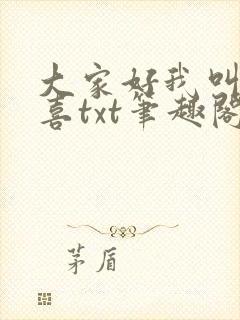 大家好我叫
喜txt笔趣阁
茅盾